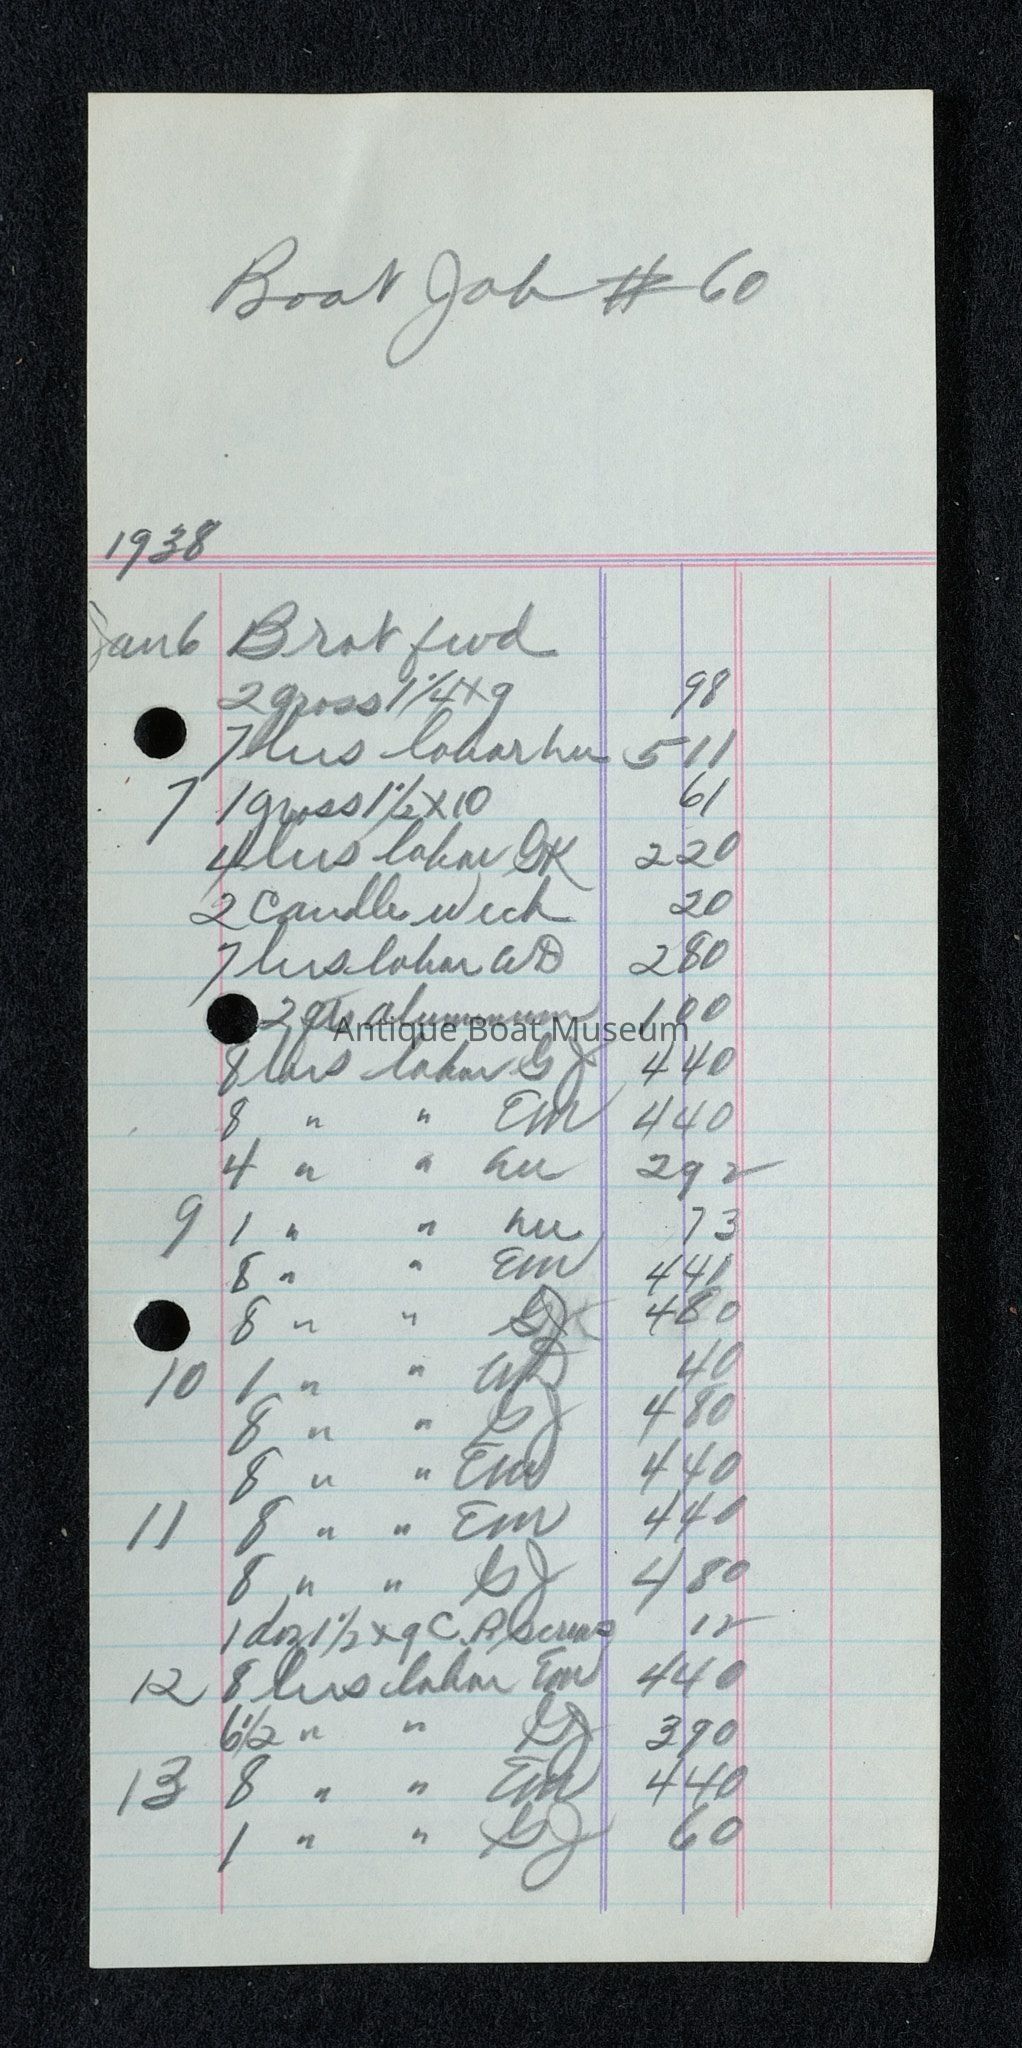 Boat Job # 60
1938
Jan 6 Brot fwd
2 gross 1 1/4 x 9 98
7 hrs labor hu 5 11
7 1 gross 1 1/2 x 10 61
4 hrs labor GK 2 20
2 Candle Wick 20
7 hrs labor AD 2 80
2 qts aluminum 1 00
Antique Boat Museum
8 hrs labor GJ 4 40
8 " " Em 4 40
4 " " hu 2 92
9 1 " " hu 73
8 " " Em 4 41
8 " " GJ 4 80
10 1 " " AD 40
8 " " GJ 4 80
8 " " Em 4 40
11 8 " " Em 4 40
8 " " GJ 4 80
1 doz 1 1/2 x 9 C.P. Screws 12
12 8 hrs labor Em 4 40
6 1/2 " " GJ 3 90
13 8 " " Em 4 40
1 " " GJ 60